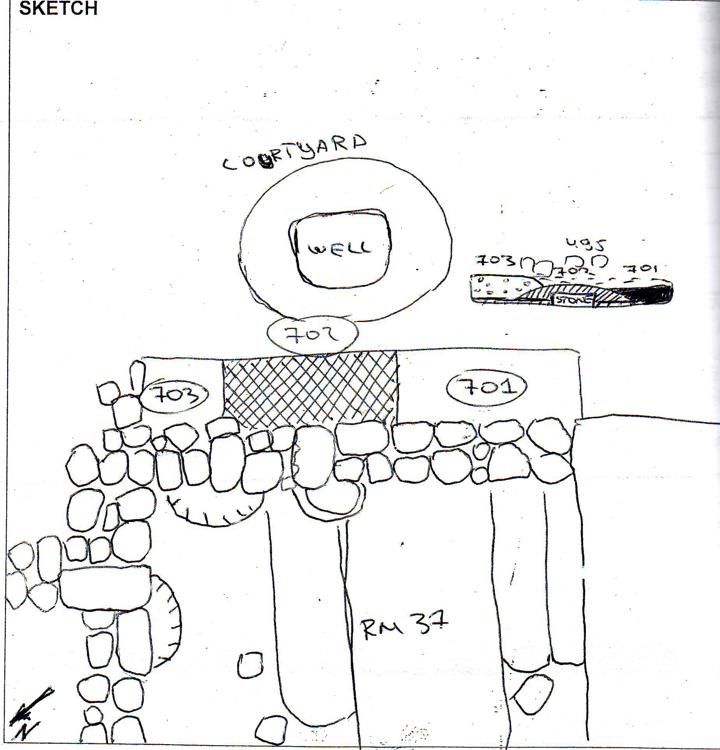 SKETCH
COURTYARD
WELL
495
703 702 701
STONE
702
703
701
RM 37
N